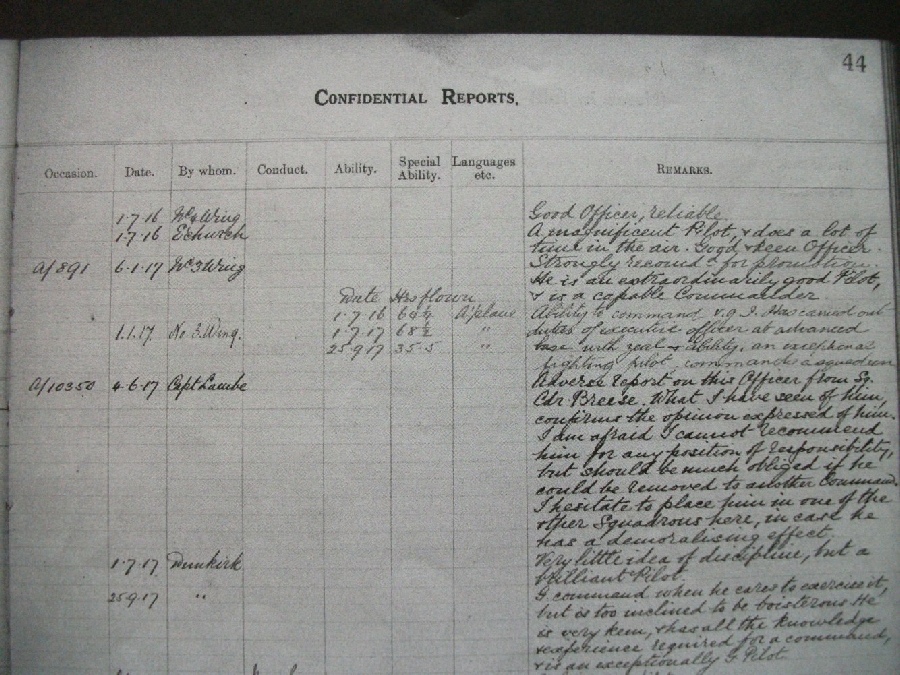 44
CONFIDENTIAL REPORTS.
Occasion. Date. By whom. Conduct. Ability. Special Ability. Languages etc. REMARKS.
1·7·16 Wing Good Officer, reliable
1·7·16 Echurch A magnificent Pilot, & does a lot of
time in the air. Good & keen Officer.
A/891 6·1·17 No 3 Wing Strongly recomd for promotion.
He is an extraordinarily good Pilot,
Date Hrs flown & is a capable Commander
1·7·16 A'plane Ability to command v.g.I. Has carried out
1.1.17. No 3. Wing. 1·7·17 68½ " duties of executive officer at advanced
25 9 17 35·5 " base with zeal & ability. an exceptional
fighting pilot, commands a squadron
A/10350 4·6·17 Capt Lambe Adverse report on this Officer from Sq.
Cdr Breese. What I have seen of him,
confirms the opinion expressed of him.
I am afraid I cannot recommend
him for any position of responsibility,
but should be much obliged if he
could be removed to another Command.
I hesitate to place him in one of the
other Squadrons here, in case he
has a demoralising effect.
1·7·17 Dunkirk Very little idea of discipline, but a
brilliant Pilot.
25 9 17 " G. command when he cares to exercise it,
but is too inclined to be boisterous He
is very keen, & has all the knowledge
& experience required for a command,
& is an exceptionally G. Pilot.